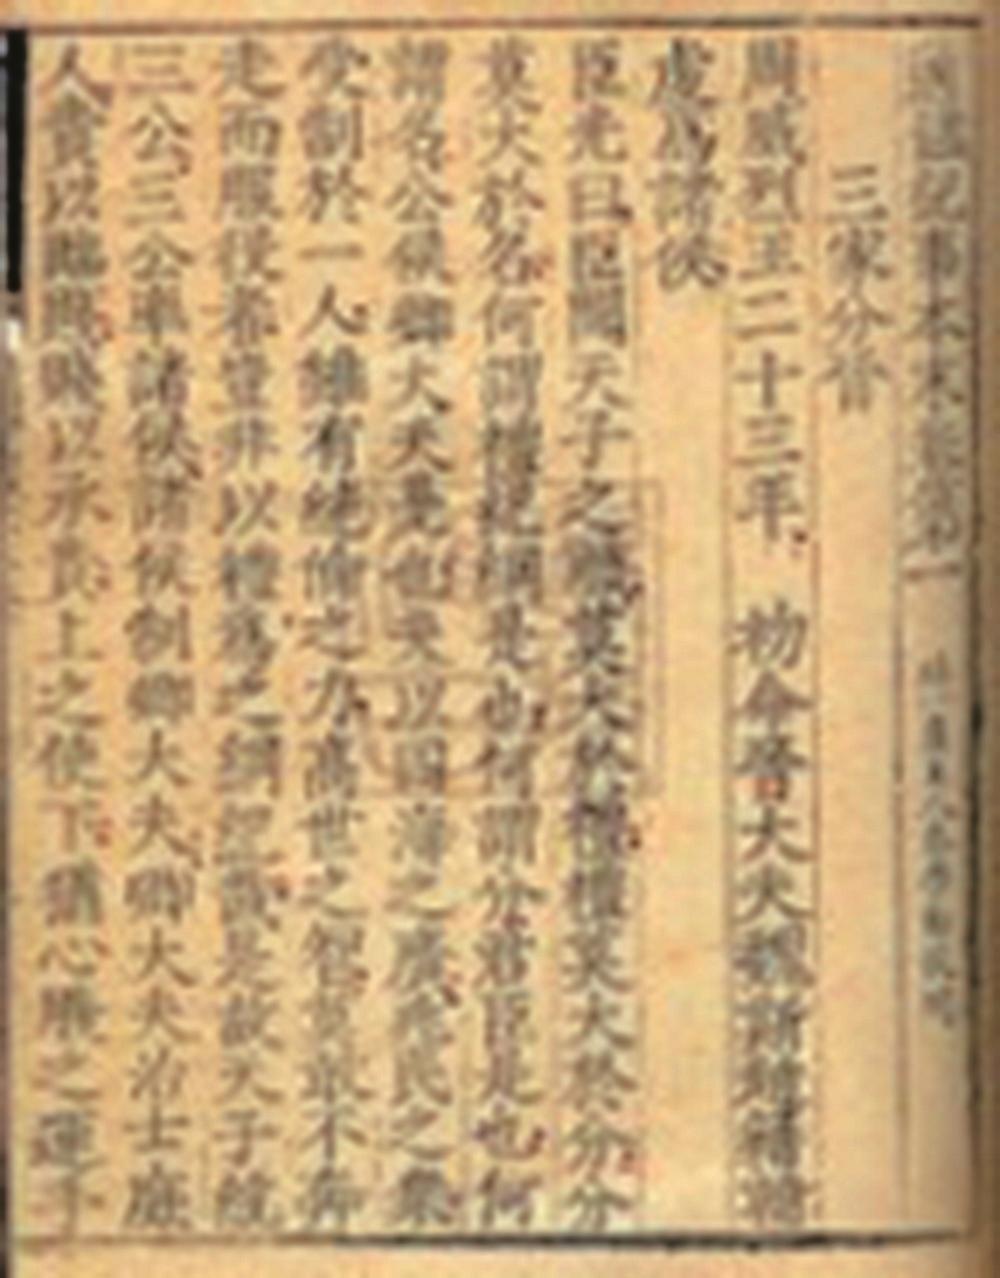 通鑑紀事本末卷第一
三家分晉
周威烈王二十三年 初命晉大夫魏斯趙籍韓
虔為諸侯
臣光曰臣聞天子之職莫大於禮禮莫大於分分
莫大於名何謂禮紀綱是也何謂分君臣是也何
謂名公侯卿大夫是也夫以四海之廣兆民之衆
受制於一人雖有絕倫之力高世之智莫敢不奔
走而服役者豈非以禮為之綱紀哉是故天子統
三公三公率諸侯諸侯制卿大夫卿大夫治士庶
人貴以臨賤賤以承貴上之使下猶心腹之運手